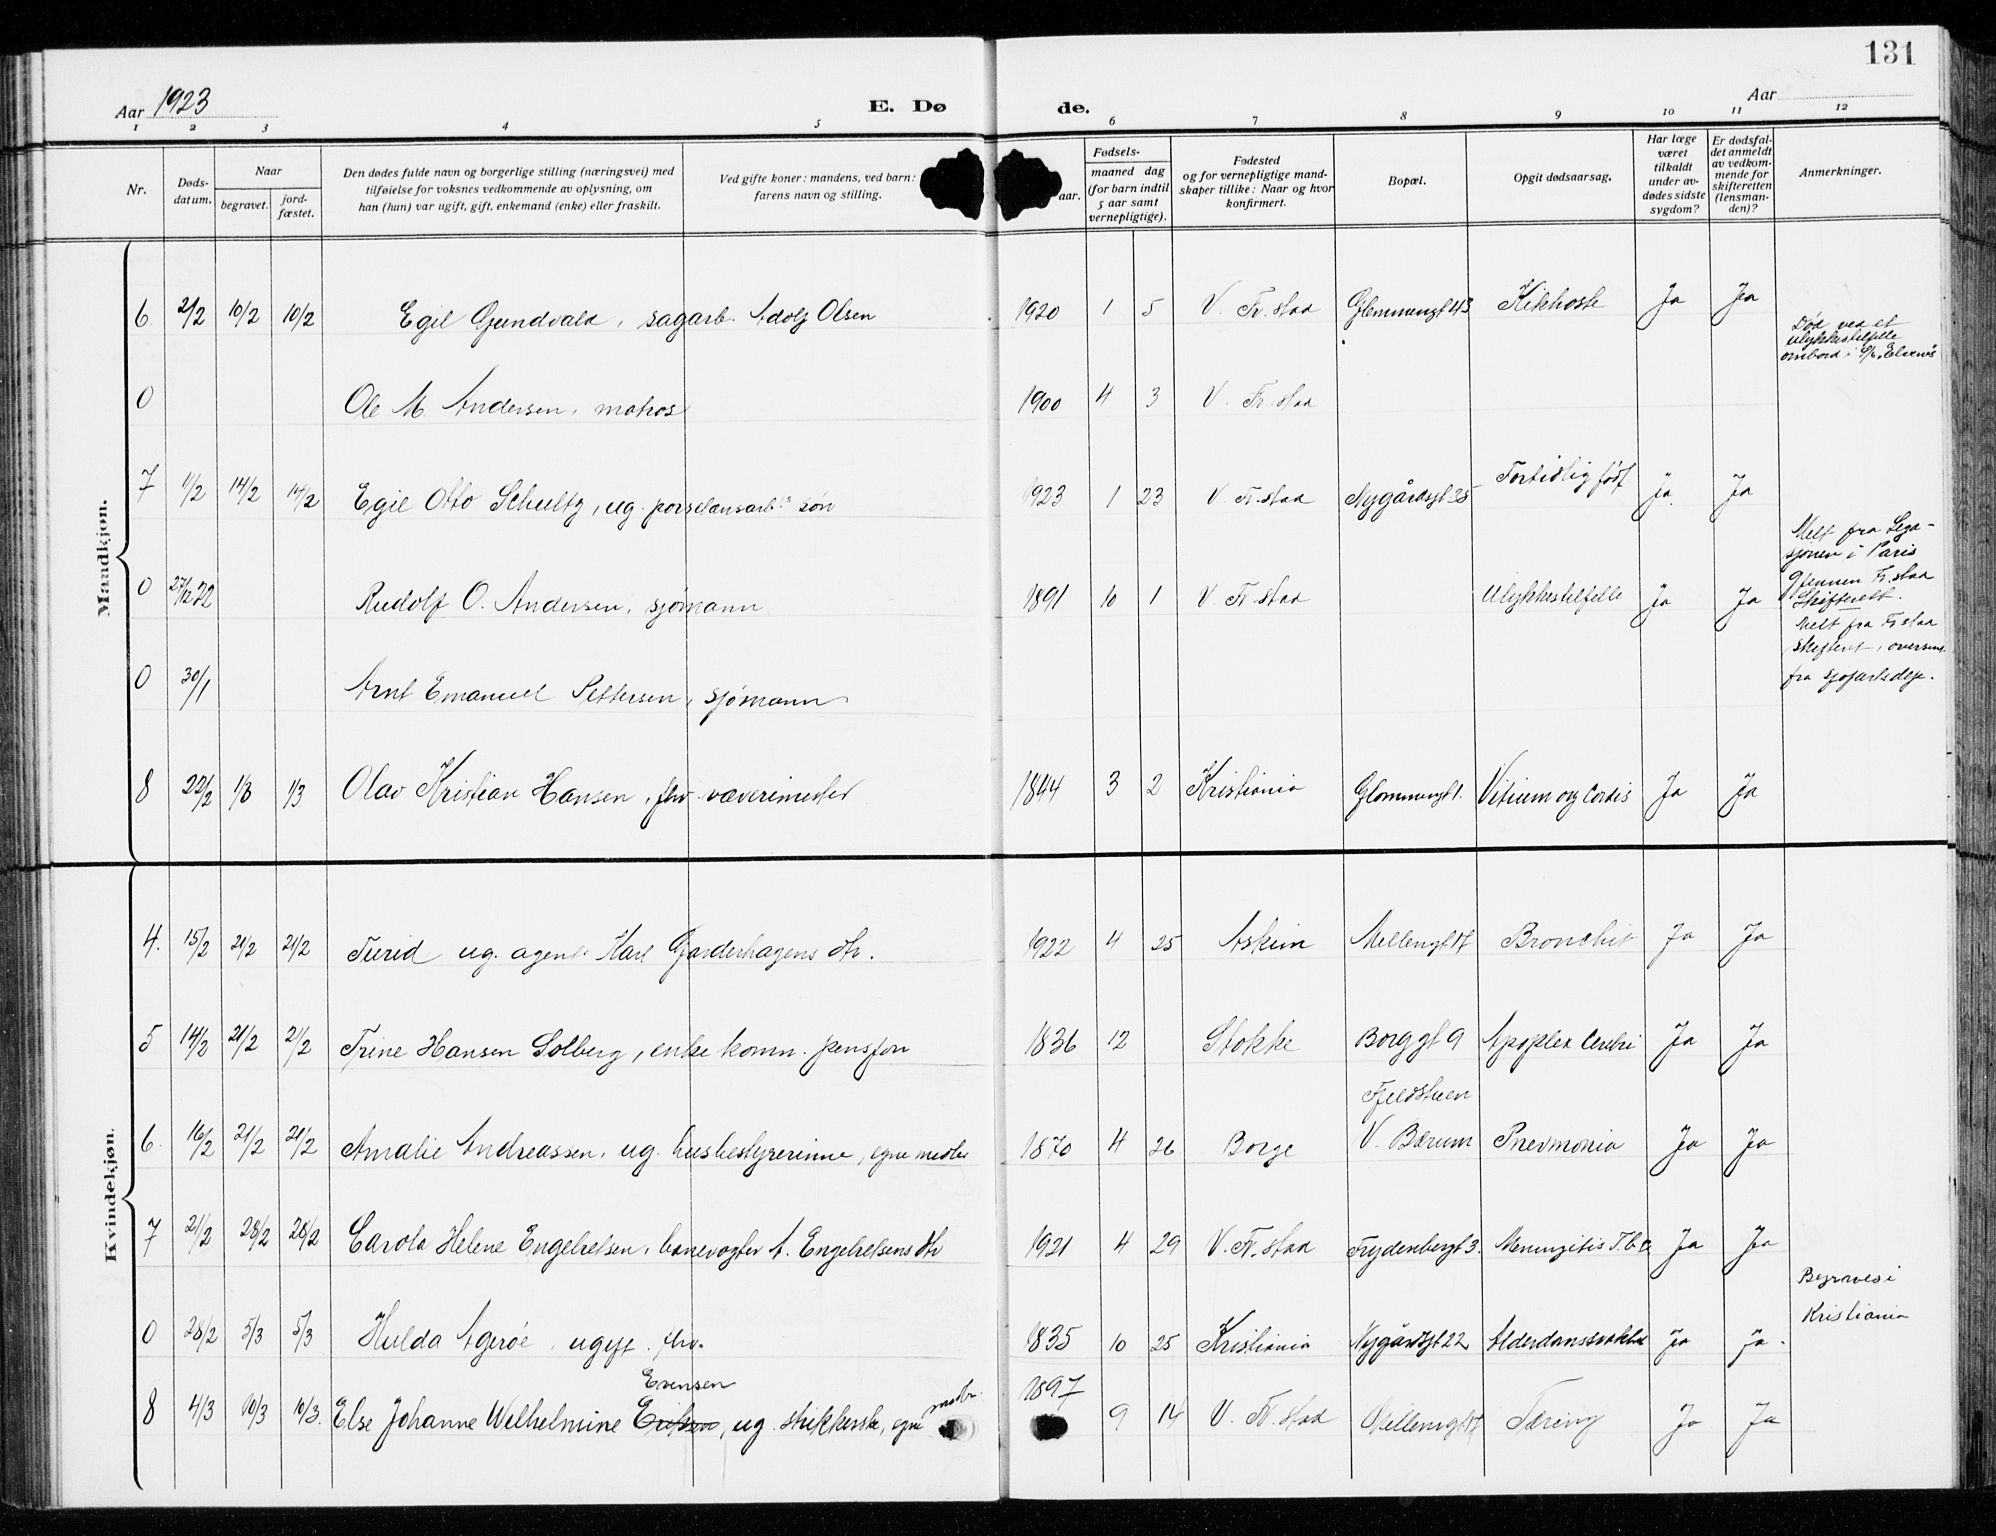 131
Aar 1923
E. Dø de.
Aar
1 2 3 4 5 6 7 8 9 10 11 12
Nr.
Døds-
datum.
Naar
begravet.
jord-
fæstet.
Den dødes fulde navn og borgerlige stilling (næringsvei) med
tilføielse for voksnes vedkommende av oplysning, om
han (hun) var ugift, gift, enkemand (enke) eller fraskilt.
Ved gifte koner: mandens, ved barn:
farens navn og stilling.
aar.
Fødsels-
maaned dag
(for barn indtil
5 aar samt
vernepligtige).
Fødested
og for vernepligtige mand-
skaper tillike: Naar og hvor
konfirmert.
Bopæl.
Opgit dødsaarsag.
Har læge
været
tilkaldt
under av-
dødes sidste
sygdom?
Er dødsfal-
det anmeldt
av vedkom-
mende for
skifteretten
(lensman-
den)?
Anmerkninger.
Mandkjøn.
6 2/2 10/2 10/2 Egil Gundvald, sagarb. Adolf Olsen 1920 1 5 V. Fr.stad Glemmengt 43 Kikhoste Ja Ja
Død ved et
ulykkestilfelle
ombord i
0 Ole M Andersen, matros 1900 4 3 V. Fr.stad
7 1/2 14/2 14/2 Egil Otto Schultz, ug. porselansarb.s søn 1923 1 23 V. Fr.stad Nygårdsgt 35 Fortidlig født Ja Ja
Melt fra Lega-
sjonen i Paris
gjennem Fr.stad
Skifterett.
0 27/12 22 Rudolf O. Andersen, sjømann 1891 10 1 V. Fr.stad Ulykkestilfelle Ja Ja
Melt fra Fr.stad
skifteret, oversent
fra sjøfartsdep.
0 30/1 Arnt Emanuel Pettersen, sjømann
8 22/2 1/3 1/3 Olav Kristian Hansen, fhv. væverimester 1844 3 2 Kristiania Glommengt 1. Vitium org cordis Ja Ja
Kvindekjøn.
4. 15/2 21/2 21/2 Turid ug. agent Karl Garderhagens dtr. 1922 4 25 Askim Mellemgt 17 Bronchit Ja Ja
5 14/2 21/2 21/2 Trine Hansen Solberg, enke komm. pensjon 1836 12 Stokke Borggt 9 Apoplex Cerebri Ja Ja
Fjeldstuen
6. 16/2 21/2 21/2 Amalie Andreassen, ug. husbestyrerinne, egne midler 1870 4 26 Borge V. Bærum Pnevmonia Ja Ja
7 21/2 28/2 28/2 Carola Helene Engebretsen, banevogter A. Engebretsens dtr 1921 4 29 V. Fr.stad Frydenbergt 3. Meningitis T.b.c Ja Ja
Begraves i
Kristiania
0 28/2 5/3 5/3 Hulda Agerøe, ugift. fhv. 1835 10 25 Kristiania Nygårdsgt 22 Alderdomssvakhet Ja Ja.
Evensen
8 4/3 10/3 10/3. Else Johanne Wilhelmine Eriksen, ug. strikkerske, egne midler 1897 9 14 V. Fr.stad Mellemgt 17 Tæring Ja Ja